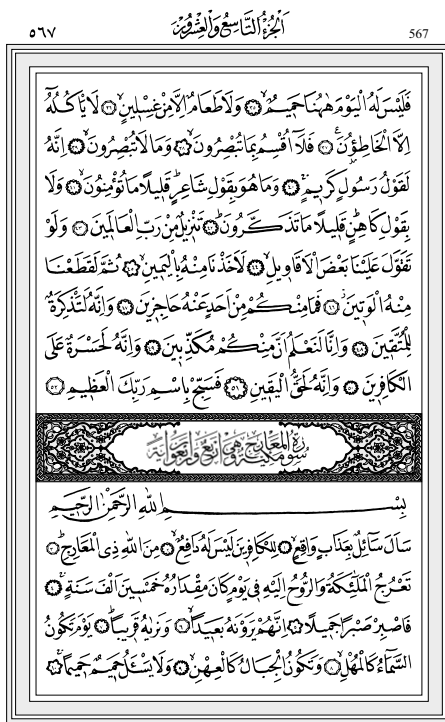 567 اَلْجُزْءُ التَّاسِعُ وَالْعِشْرُونَ ٥٦٧
فَلَيْسَ لَهُ الْيَوْمَ هٰهُنَا حَمِيمٌۙ ﴿٣٥﴾ وَلَا طَعَامٌ اِلَّا مِنْ غِسْلِينٍۙ ﴿٣٦﴾ لَا يَأْكُلُهُٓ
اِلَّا الْخَاطِؤُ۫نَ۟ ﴿٣٧﴾ فَلَٓا اُقْسِمُ بِمَا تُبْصِرُونَۙ ﴿٣٨﴾ وَمَا لَا تُبْصِرُونَۙ ﴿٣٩﴾ اِنَّهُ
لَقَوْلُ رَسُولٍ كَرِيمٍۚ ﴿٤٠﴾ وَمَا هُوَ بِقَوْلِ شَاعِرٍۜ قَلِيلًا مَا تُؤْمِنُونَۙ ﴿٤١﴾ وَلَا
بِقَوْلِ كَاهِنٍۜ قَلِيلًا مَا تَذَكَّرُونَۜ ﴿٤٢﴾ تَنْزِيلٌ مِنْ رَبِّ الْعَالَمِينَ ﴿٤٣﴾ وَلَوْ
تَقَوَّلَ عَلَيْنَا بَعْضَ الْاَقَاوِيلِۙ ﴿٤٤﴾ لَاَخَذْنَا مِنْهُ بِالْيَمِينِۙ ﴿٤٥﴾ ثُمَّ لَقَطَعْنَا
مِنْهُ الْوَتِينَۘ ﴿٤٦﴾ فَمَا مِنْكُمْ مِنْ اَحَدٍ عَنْهُ حَاجِزِينَ ﴿٤٧﴾ وَاِنَّهُ لَتَذْكِرَةٌ
لِلْمُتَّقِينَ ﴿٤٨﴾ وَاِنَّا لَنَعْلَمُ اَنَّ مِنْكُمْ مُكَذِّبِينَ ﴿٤٩﴾ وَاِنَّهُ لَحَسْرَةٌ عَلَى
الْكَافِرِينَ ﴿٥٠﴾ وَاِنَّهُ لَحَقُّ الْيَقِينِ ﴿٥١﴾ فَسَبِّحْ بِاسْمِ رَبِّكَ الْعَظِيمِ ﴿٥٢﴾
سُورَةُ الْمَعَارِجِ مَكِّيَّةٌ وَهِيَ اَرْبَعٌ وَاَرْبَعُونَ اٰيَةً
بِسْمِ اللّٰهِ الرَّحْمٰنِ الرَّحِيمِ
سَاَلَ سَٓائِلٌ بِعَذَابٍ وَاقِعٍۙ ﴿١﴾ لِلْكَافِرِينَ لَيْسَ لَهُ دَافِعٌۙ ﴿٢﴾ مِنَ اللّٰهِ ذِي الْمَعَارِجِۜ ﴿٣﴾
تَعْرُجُ الْمَلٰٓئِكَةُ وَالرُّوحُ اِلَيْهِ فِي يَوْمٍ كَانَ مِقْدَارُهُ خَمْسِينَ اَلْفَ سَنَةٍۚ ﴿٤﴾
فَاصْبِرْ صَبْرًا جَمِيلًا ﴿٥﴾ اِنَّهُمْ يَرَوْنَهُ بَعِيدًاۙ ﴿٦﴾ وَنَرٰيهُ قَرِيبًاۜ ﴿٧﴾ يَوْمَ تَكُونُ
السَّمَٓاءُ كَالْمُهْلِۙ ﴿٨﴾ وَتَكُونُ الْجِبَالُ كَالْعِهْنِۙ ﴿٩﴾ وَلَا يَسْـَٔلُ حَمِيمٌ حَمِيمًاۚ ﴿١٠﴾